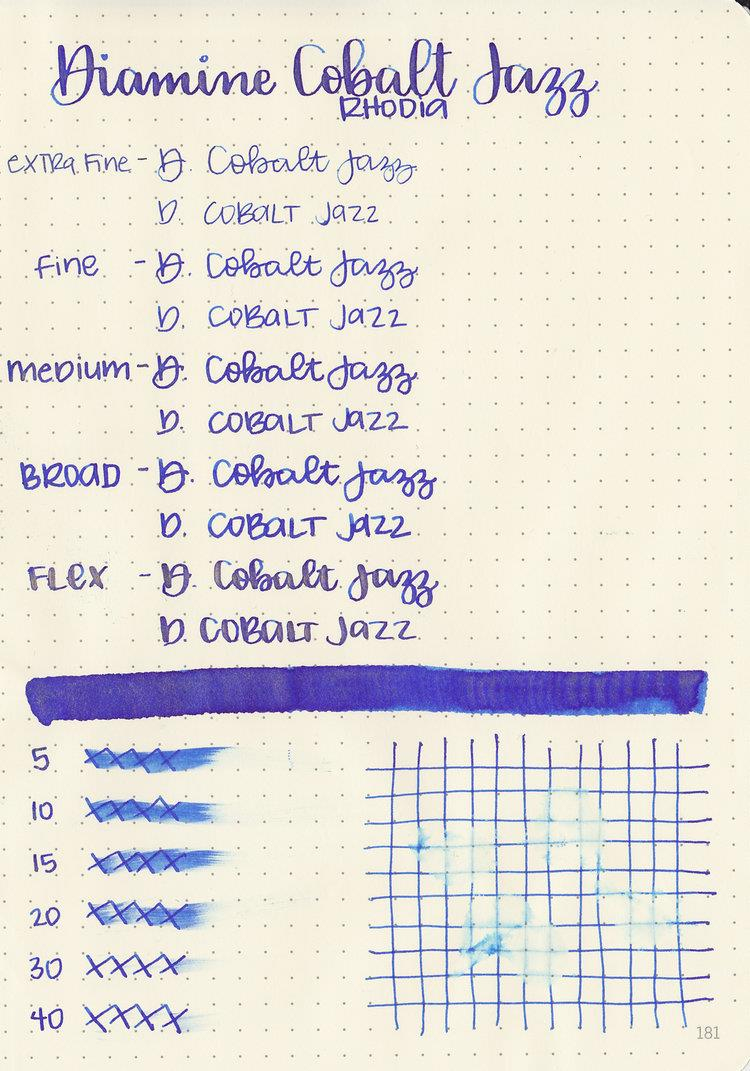 Diamine Cobalt Jazz
RHODIA
extra fine - D. Cobalt Jazz
D. Cobalt Jazz
fine - D. Cobalt Jazz
D. Cobalt Jazz
medium - D. Cobalt Jazz
D. Cobalt Jazz
BROAD - D. Cobalt Jazz
D. Cobalt Jazz
FLex - D. Cobalt Jazz
D. Cobalt Jazz
5 XXXX
10 XXXX
15 XXXX
20 XXXX
30 XXXX
40 XXXX
181